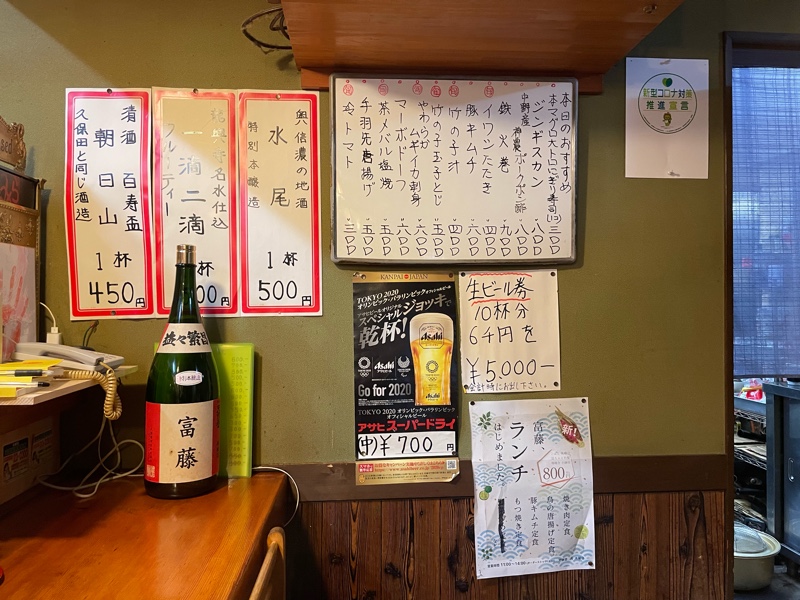 清酒 百寿盃
朝日山
久保田と同じ酒造
1杯
450円
一滴二滴
フルーティー
杯
00円
奥信濃の地酒
水尾
特別本醸造
1杯
500円
本日のおすすめ
本マグロ大トロにぎり寿司
三〇〇
ジンギスカン
八〇〇
中野産
八〇〇
鉄火巻
九〇〇
イワシたたき
四〇〇
豚キムチ
六〇〇
竹の子汁
四〇〇
竹の子玉子とじ
五〇〇
やわらかムギイカ刺身
六〇〇
マーボドーフ
六〇〇
茶メバル塩焼
五〇〇
手羽先唐揚げ
五〇〇
冷トマト
三〇〇
新型コロナ対策
推進宣言
益々繁盛
富藤
KANPAI JAPAN
TOKYO 2020
オリンピック・パラリンピックオフィシャルビール
アサヒビールオリジナル
スペシャルジョッキで
乾杯!
Asahi
TOKYO 2020
Asahi
Asahi
Go for 2020
TOKYO 2020 オリンピック・パラリンピック
オフィシャルビール
アサヒスーパードライ
(中)¥700円
生ビール券
10杯分
64円を
¥5,000-
会計時にお出し下さい。
新!
富藤、
ランチ
はじめました。
800円
焼き肉定食
鳥の唐揚げ定食
豚キムチ定食
もつ焼き定食
営業時間 11:00〜14:00